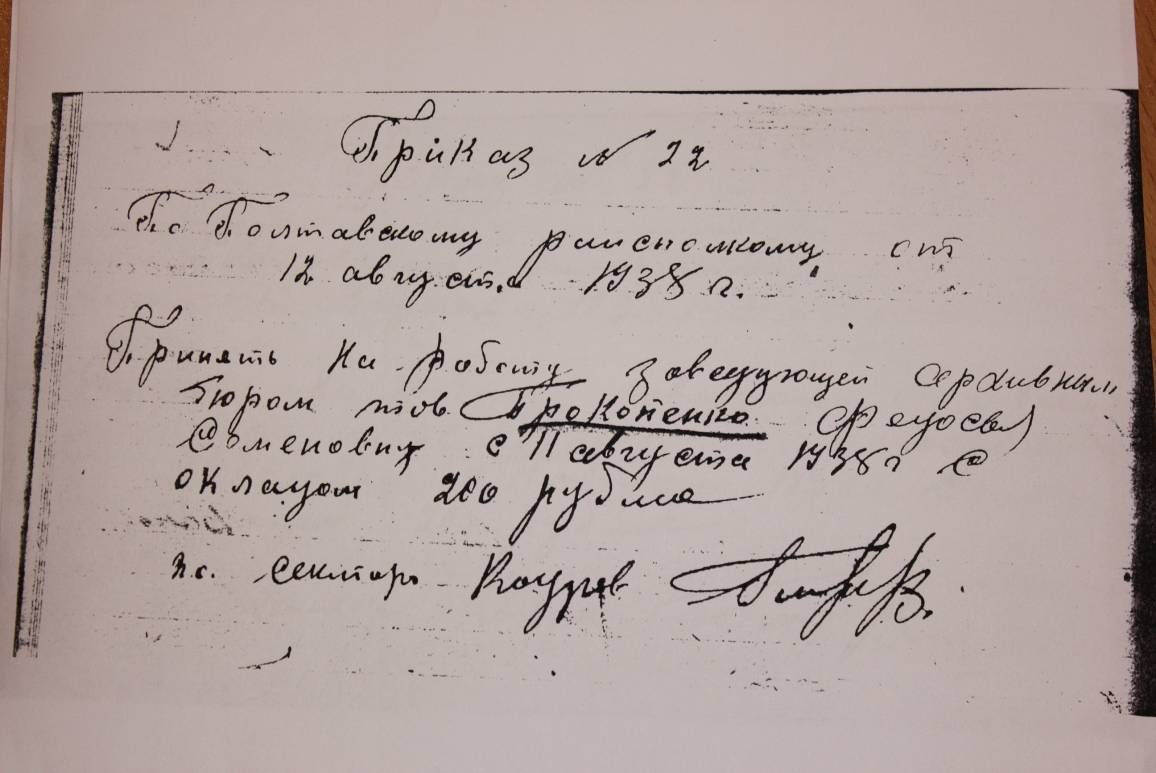 Приказ № 22
По Полтавскому раисполкому от
12 августа 1938 г.
Принять на роботу заведующей архивным
бюром тов Прокопенко Федосья
Семеновну с 11 августа 1938 г с
окладом 200 рубле
сектор